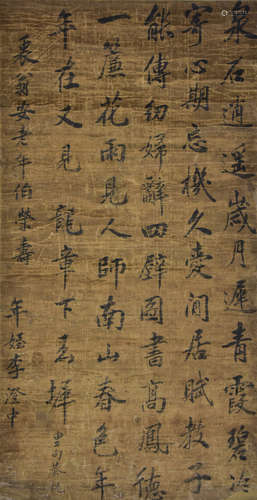 泉石逍遥歲月遲青霞碧冷
寄心期忘機久愛閒居賦教子
能傳幼婦辭四壁圖書高鳳德
一簾花雨見人師南山春色年
年在又見龍章下玉墀
裘翁安老年伯榮壽
年姪李澄中